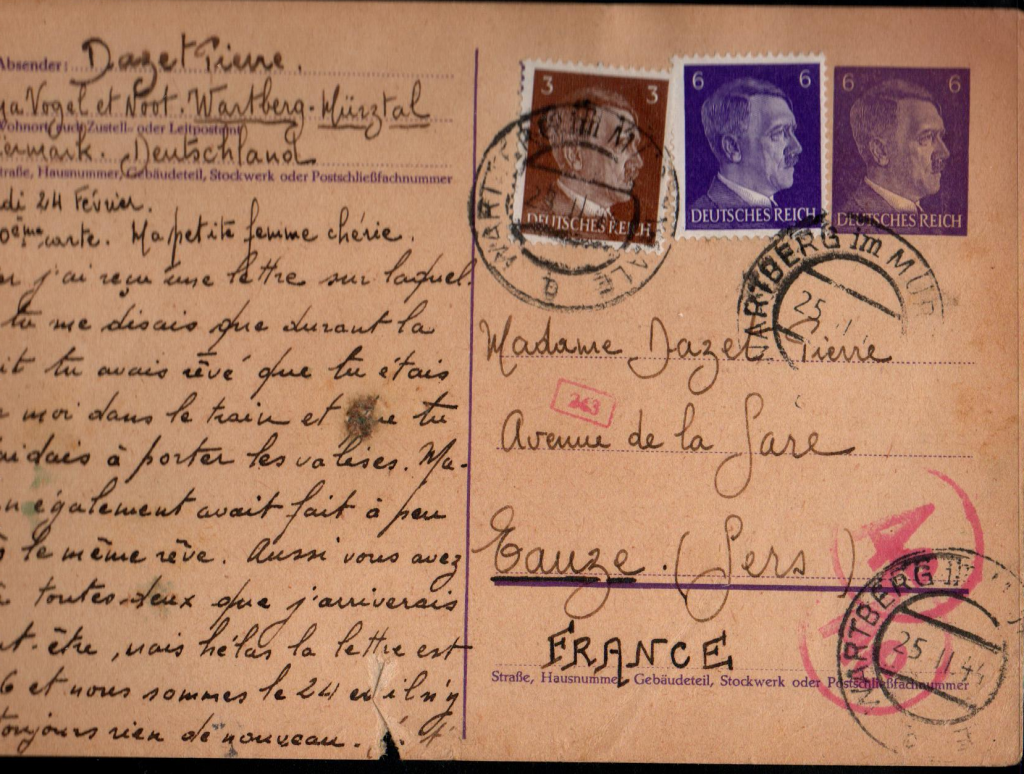 Absender: Dazet Pierre.
Vogel et Noot. Wartberg. Mürztal
Wohnort, auch Zustell- oder Leitpostamt
Deutschland
Straße, Hausnummer, Gebäudeteil, Stockwerk oder Postschließfachnummer
di 24 Février.
carte. Ma petite femme chérie.
j'ai reçu une lettre sur laquel-
tu me disais que durant la
it tu avais rêvé que tu étais
moi dans le train et que tu
aidais à porter les valises. Ma-
n également avait fait à peu
s le même rêve. Aussi vous avez
toutes deux que j'arriverais
t-être, mais hélas la lettre est
6 et nous sommes le 24 et il n'y
toujours rien de nouveau.
3 3
DEUTSCHES REICH
6 6
DEUTSCHES REICH
6 6
DEUTSCHES REICH
WARTBERG im MÜR
25
WARTBERG im MÜR
25
Madame Dazet Pierre
243
Avenue de la Gare
Eauze. (Gers)
FRANCE
Straße, Hausnummer, Gebäudeteil, Stockwerk oder Postschließfachnummer
WARTBERG im
25 II 44